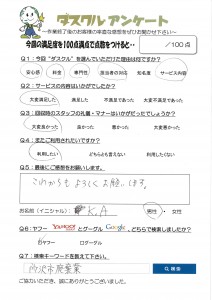 ダスクルアンケート
～作業終了後のお客様の率直な感想をぜひお聞かせ下さい～
今回の満足度を100点満点で点数をつけると・・ /100点
Q1：今回"ダスクル"を選んでいただけた理由は何ですか?
安心感 料金 専門性 担当者の対応 知名度 サービス内容
Q2：サービスの内容はいかがでしたか?
大変満足した 満足した 不満足であった 大変不満足であった
Q3：回収時のスタッフの礼儀・マナーはいかがだったでしょうか?
大変良かった 良かった 悪かった 大変悪かった
Q4：またご利用されたいですか?
利用したい どちらとも言えない 利用したくない
Q5：最後にご感想をお願いします。
これからもよろしくお願いします。
お名前(イニシャル)： K.A 男性・女性
Q6：ヤフー YAHOO! JAPAN とグーグル Google、どちらで検索しましたか?
ヤフー グーグル
Q7：検索キーワードを教えて下さい。
所沢市廃業業 検索
ご協力いただき、誠にありがとうございました。